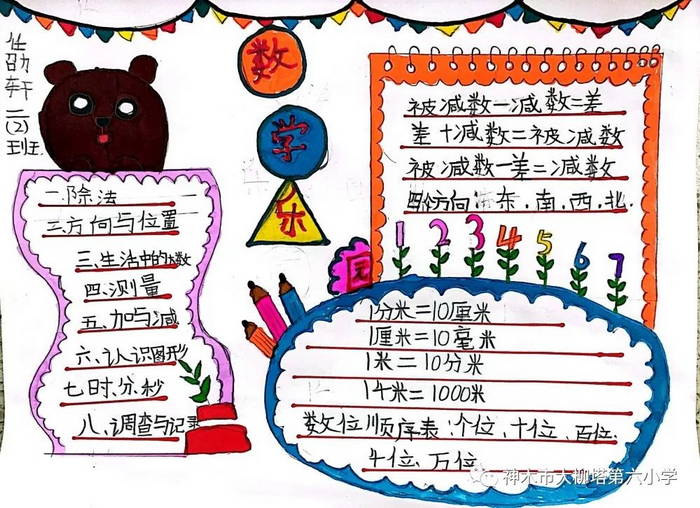 轩
二(2)
班
数
学
乐
园
一.除法
二.方向与位置
三.生活中的大数
四.测量
五.加与减
六.认识图形
七.时.分.秒
八.调查与记录
被减数-减数=差
差+减数=被减数
被减数-差=减数
四个方向:东.南.西.北.
1 2 3 4 5 6 7
1分米=10厘米
1厘米=10毫米
1米=10分米
1千米=1000米
数位顺序表:个位、十位、百位.
千位、万位
神木市大柳塔第六小学